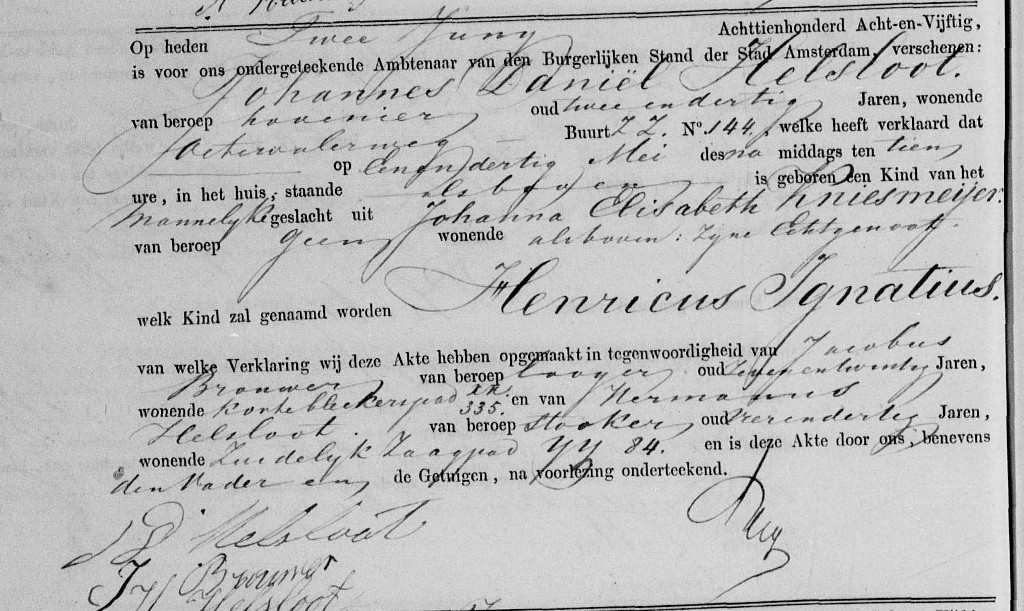 Achttienhonderd Acht-en-Vijftig,
Op heden Twee Juny
is voor ons ondergeteekende Ambtenaar van den Burgerlijken Stand der Stad Amsterdam, verschenen:
Johannes Daniël Helsloot.
van beroep hovenier oud twee en dertig Jaren, wonende
Oetewalerweg Buurt ZZ. No. 144, welke heeft verklaard dat
op Eenendertig Mei des na middags ten tien
ure, in het huis, staande alsboven is geboren een Kind van het
Mannelyke geslacht uit Johanna Elisabeth Kniesmeijer.
van beroep geen wonende alsboven: zyne Echtgenoot.
welk Kind zal genaamd worden Henricus Ignatius.
van welke Verklaring wij deze Akte hebben opgemaakt in tegenwoordigheid van Jacobus
Brouwer van beroep oud zevenentwintig Jaren,
wonende Korte bleekerspad XX. 335. en van Hermanus
Helsloot. van beroep stooker oud vierendertig Jaren,
wonende Zuidelyk Zaagpad YY 84. en is deze Akte door ons, benevens
den Vader en de Getuigen, na voorlezing onderteekend.
J D Helsloot
J Brouwer
H Helsloot